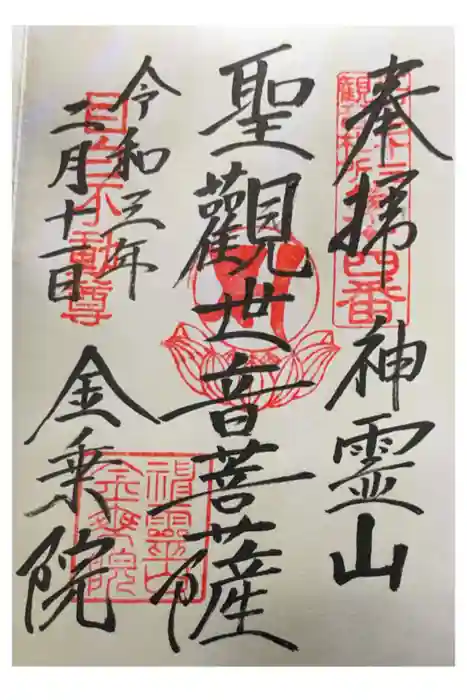 奉拝 神霊山
聖觀世音菩薩
令和三年
二月十一日
金乗院
目白不動尊
四番
神靈山
金乗院